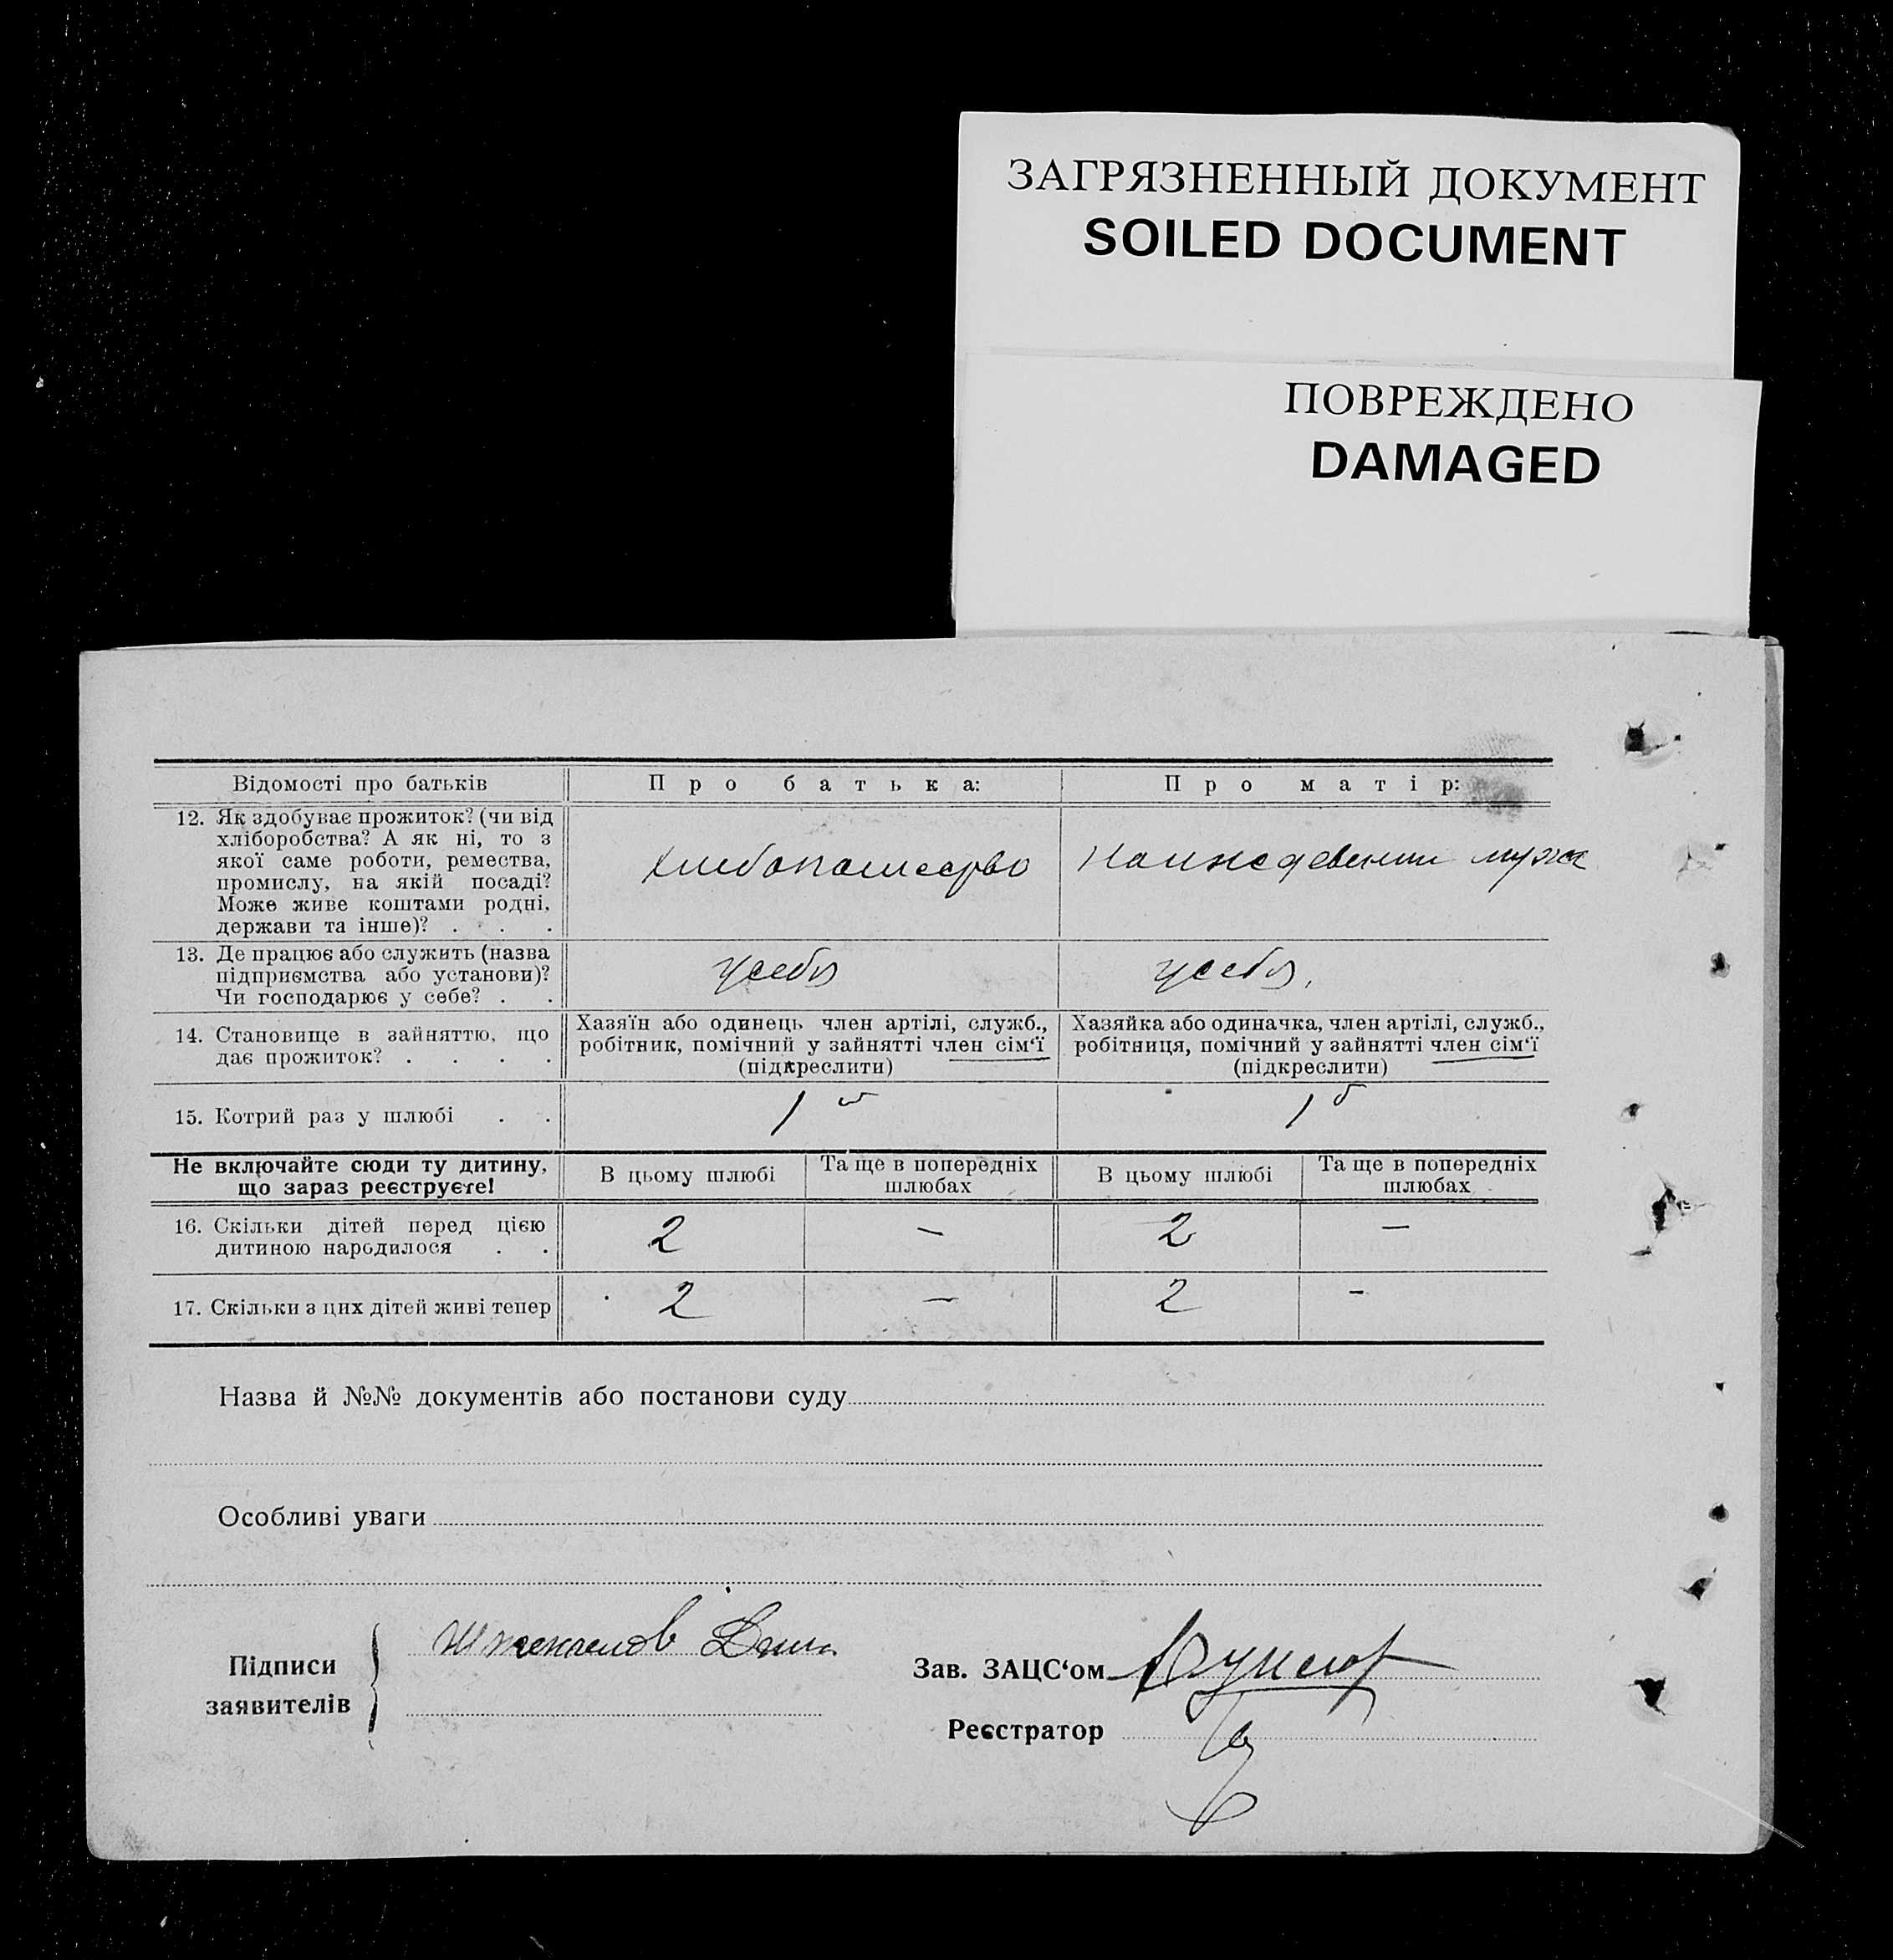 ЗАГРЯЗНЕННЫЙ ДОКУМЕНТ
SOILED DOCUMENT
ПОВРЕЖДЕНО
DAMAGED
Відомості про батьків
Про батька:
Про матір:
12. Як здобуває прожиток? (чи від
хліборобства? А як ні, то з
якої саме роботи, ремества,
промислу, на якій посаді?
Може живе коштами родні,
держави та інше)? . . .
хлебопашество
на иждевении мужа
13. Де працює або служить (назва
підприємства або установи)?
Чи господарює у себе? . .
у себя
у себя,
14. Становище в зайняттю, що
дає прожиток? . . . .
Хазяїн або одинець член артілі, служб.,
робітник, помічний у зайнятті член сім‘ї
(підкреслити)
Хазяйка або одиначка, член артілі, служб.,
робітниця, помічний у зайнятті член сім‘ї
(підкреслити)
15. Котрий раз у шлюбі . .
1
1
Не включайте сюди ту дитину,
що зараз реєструєте!
В цьому шлюбі
Та ще в попередніх
шлюбах
В цьому шлюбі
Та ще в попередніх
шлюбах
16. Скільки дітей перед цією
дитиною народилося . .
2
—
2
—
17. Скільки з цих дітей живі тепер
2
—
2
-
Назва й №№ документів або постанови суду
Особливі уваги
Підписи
заявителів
Зав. ЗАЦС‘ом
Реєстратор